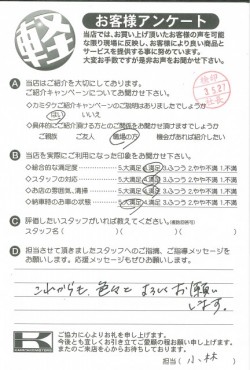 軽
お客様アンケート
当店では、お買い上げ頂いたお客様の声を可能
な限り現場に反映し、お客様により良い商品と
サービスを提供する事に努めています。
大変お手数ですが是非お声をお聞かせ下さい。
A 当店はご紹介を大切にしております。
ご紹介キャンペーンについてお聞かせ下さい。
・カミタウご紹介キャンペーンのご説明はありましたでしょうか
はい いいえ
・具体的にご紹介頂ける方とのご関係をお聞かせ頂けますでしょうか
ご親族 ご友人 職場の方 機会があれば紹介したい
B 当店を実際にご利用になった印象をお聞かせ下さい。
・総合的な満足度 5.大満足 4.満足 3.ふつう 2.やや不満 1.不満
・スタッフの対応 5.大満足 4.満足 3.ふつう 2.やや不満 1.不満
・お店の雰囲気、清掃 5.大満足 4.満足 3.ふつう 2.やや不満 1.不満
・納車時のお車の状態 5.大満足 4.満足 3.ふつう 2.やや不満 1.不満
C 評価したいスタッフがいれば教えてください。(複数回答可)
スタッフ名( )( )( )
D 担当させて頂きましたスタッフへのご指摘、ご指導メッセージを
お願いします。応援メッセージもぜひお願いします。
これからも、色々と よろしくお願い
します。
K
ご協力に心よりお礼を申し上げます。
今後とも宜しくお引き立てご愛顧の程お願い申し上げます。
またのご来店を心からお待ちしております。
担当( 小林 )